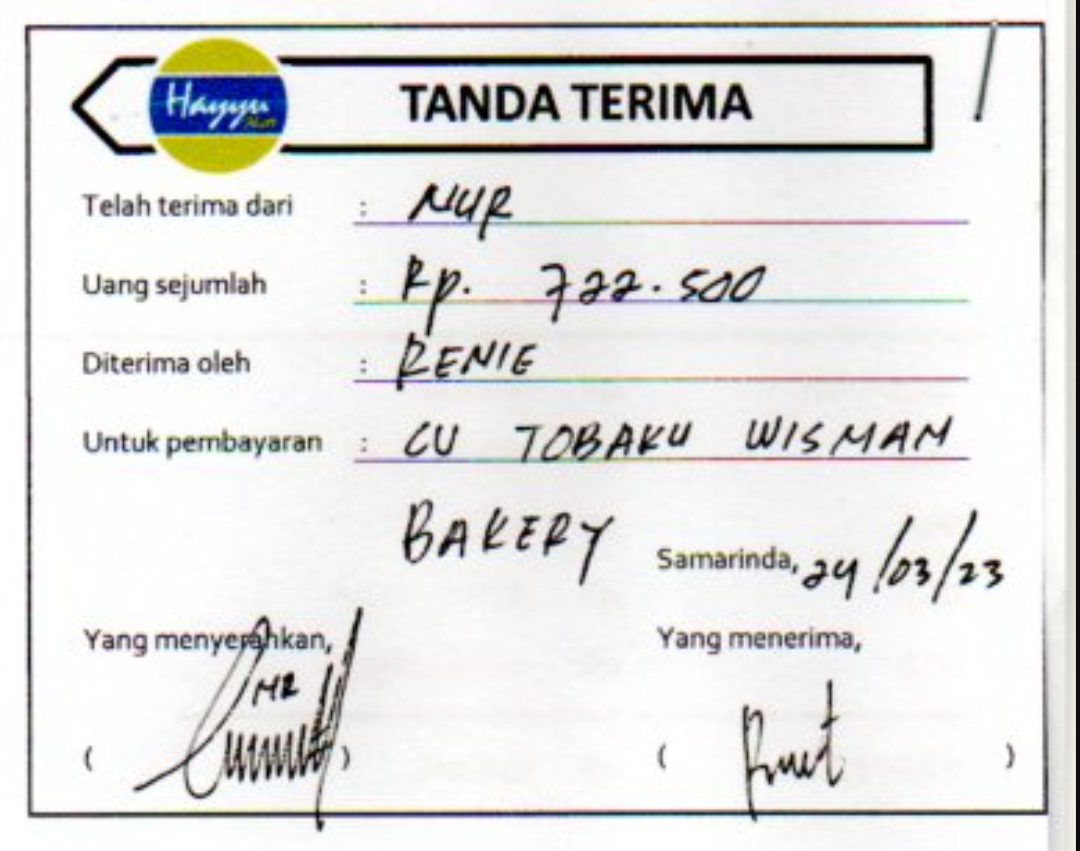 Hayyu
TANDA TERIMA
Telah terima dari : NUR
Uang sejumlah : Rp. 722.500
Diterima oleh : RENIE
Untuk pembayaran : CU TOBAKU WISMAN
BAKERY
Samarinda, 24/03/23
Yang menyerahkan,
Yang menerima,
( )
( )